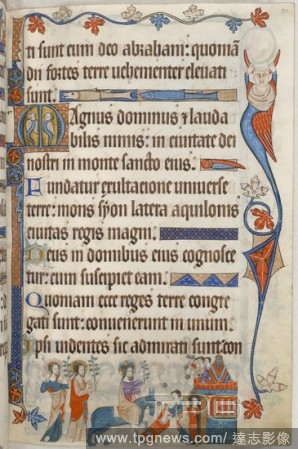 ti sunt cum deo abraham: quoniã
dii fortes terre uehementer eleuati
sunt.
Magnus dominus & lauda
bilis nimis: in ciuitate dei
nostri in monte sancto eius.
Fundatur exultacione uniuerse
terre: mons syon latera aquilonis
ciuitas regis magni.
Deus in domibus eius cognosce
tur: cum suscipiet eam.
Quoniam ecce reges terre congre
gati sunt: conuenerunt in unum.
Ipsi uidentes sic admirati sunt: con
www.tpgnews.com / 達志影像